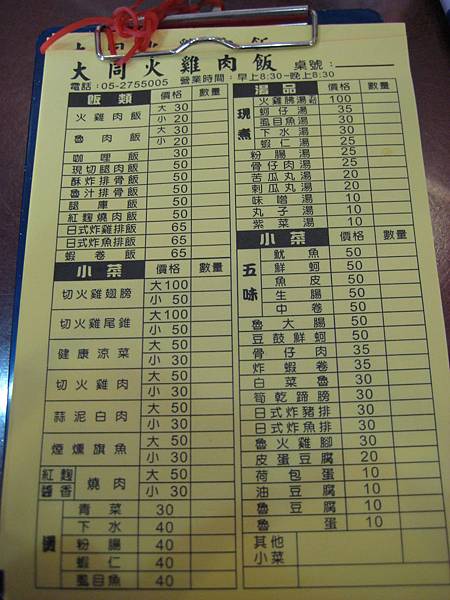 大同火雞肉飯 桌號：
電話：05-2755005 營業時間：早上8:30-晚上8:30
飯類 價格 數量
火雞肉飯 大 30
小 20
魯肉飯 大 30
小 20
咖哩飯 50
現切腿肉飯 50
酥炸排骨飯 50
魯汁排骨飯 50
腿庫飯 50
紅麴燒肉飯 50
日式炸雞排飯 65
日式炸魚排飯 65
蝦卷飯 65
小菜 價格 數量
切火雞翅膀 大100
小 50
切火雞尾錐 大100
小 50
健康涼菜 大 50
小 30
切火雞肉 大 50
小 30
蒜泥白肉 大 50
小 30
煙燻旗魚 大 50
小 30
紅麴醬香 燒肉 大 50
小 30
燙
青菜 30
下水 40
粉腸 40
蝦仁 40
虱目魚 40
湯品 價格 數量
現煮
火雞胇湯 100
蚵仔湯 35
虱目魚湯 30
下水湯 30
蝦仁湯 25
粉腸湯 25
骨仔肉湯 25
苦瓜丸湯 20
刺瓜丸湯 20
味噌湯 10
丸子湯 10
紫菜湯 10
小菜 價格 數量
五味
魷魚 50
鮮蚵 50
魚皮 50
生腸 50
中卷 50
魯大腸 50
豆鼓鮮蚵 50
骨仔肉 35
炸蝦卷 35
白菜魯 30
筍乾蹄膀 30
日式炸豬排 30
日式炸魚排 30
魯火雞腳 30
皮蛋豆腐 20
荷包蛋 10
油豆腐 10
魯豆腐 10
魯蛋 10
其他小菜